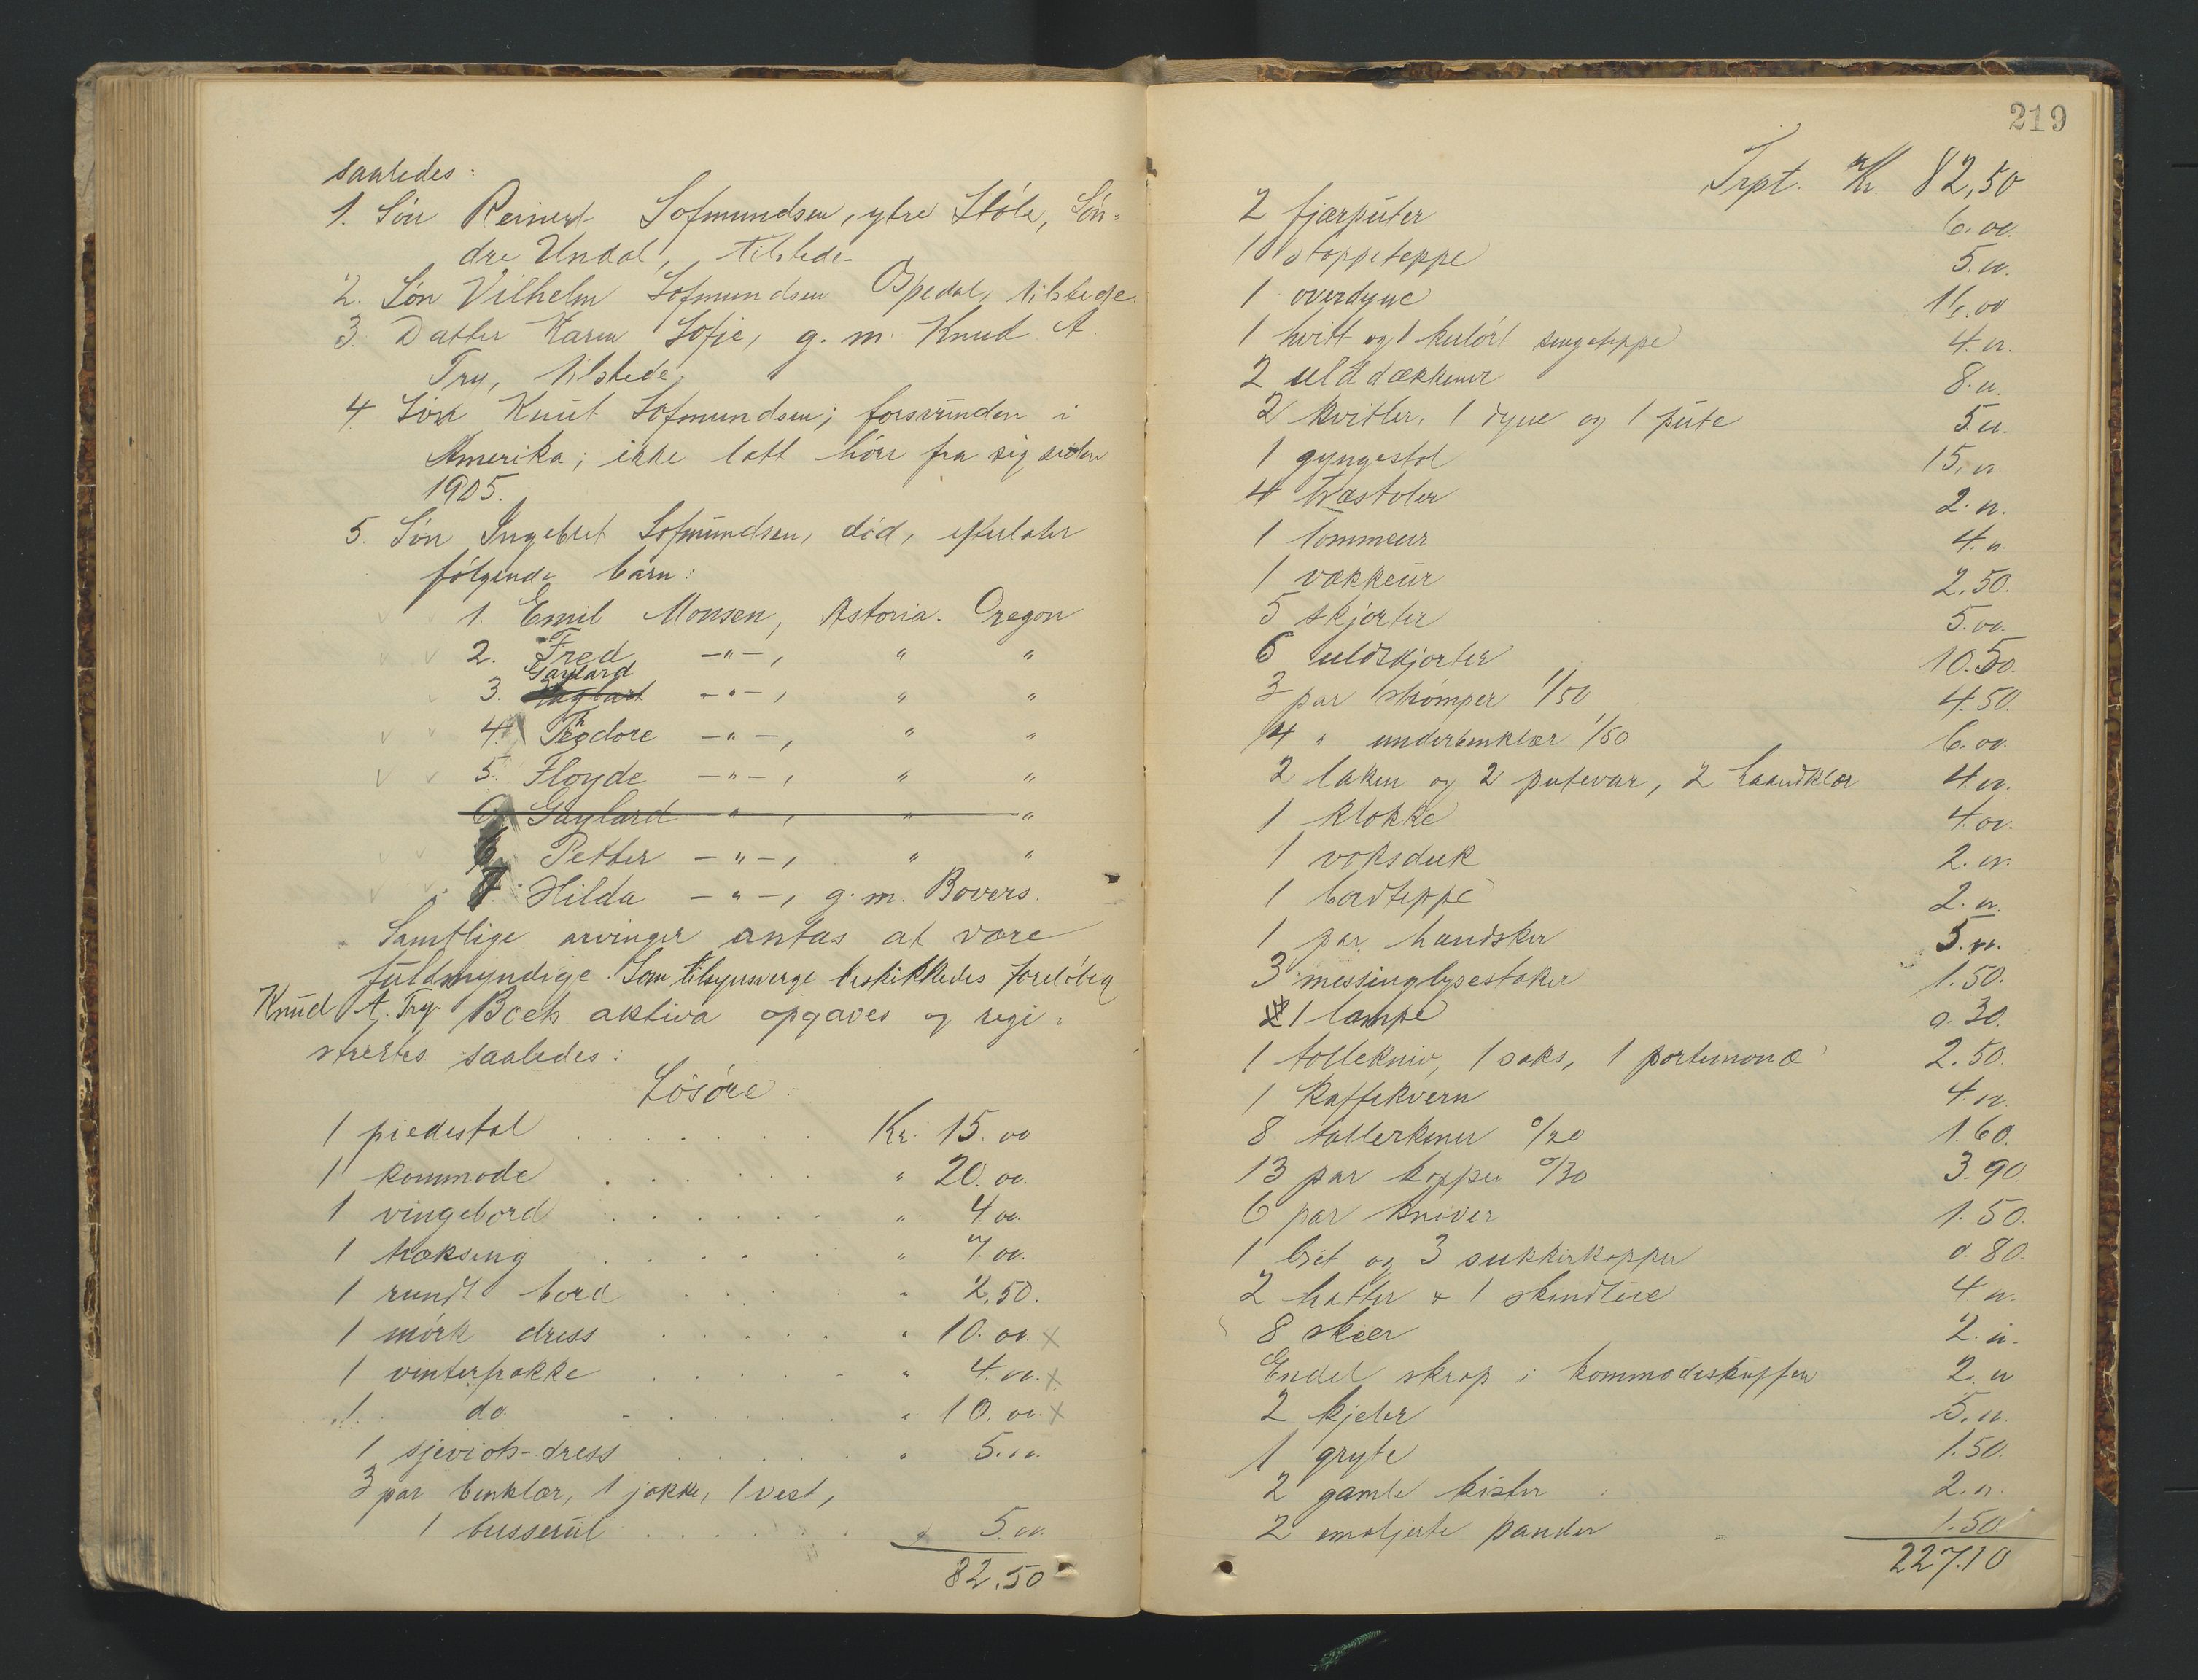 saaledes:
1. Søn Reinert Sofmundsen, ytre Støle, Søn-
dre Undal, tilstede.
2. Søn Vilhelm Sofmundsen Ospedal, tilstede.
3. Datter Karen Sofie, g. m. Knud A.
Try, tilstede.
4 Søn Knut Sofmundsen; forsvunden i
Amerika; ikke latt høre fra sig siden
1905.
5. Søn Ingebret Sofmundsen, død, efterlater
følgende barn:
1. Emil Monsen, Astoria. Oregon
2. Fred —"—, " "
Gaylard
3. —"—, " "
4. Theodore —"—, " "
5. Floyde —"—, " "
6. Gaylard —"—, " "
6. Petter —"—, " "
7. Hilda —"—, g. m. Bovers.
Samtlige arvinger antas at være
fuldmyndige. Som tilsynsverge beskikkedes foreløbig
Knud A. Try. Boets aktiva opgaves og regi-
strertes saaledes:
Løsøre:
1 piedestal . . . . . . . Kr. 15.00
1 kommode . . . . . " 20.00.
1 vingebord . . . . . . " 4.00.
1 træseng . . . . . " 7.00.
1 rundt bord . . . . " 2.50.
1 mørk dress . . . . . " 10.00. x
1 vinterfrakke . . . . . " 4.00. x
1. do. . . . . . . " 10.00. x
1 sjeviots-dress . . . . . " 5.00.
3 par benklær, 1 jakke, 1 vest,
1 busserul . . . . . " 5.00.
82.50
219
Trpt. Kr. 82,50
2 fjærputer 6.00.
1 stoppeteppe 5.00.
1 overdyne 16.00
1 hvitt og 1 kulørt sengeteppe 4.00.
2 uldækkener 8.00.
2 kvitler, 1 dyne og 1 pute 5.00.
1 gyngestol 15.00.
4 træstoler 2.00.
1 lommeur 4.00.
1 vækkeur 2.50.
5 skjorter 5.00.
6 uldskjorter 10.50.
3 par strømper 1/50 4.50.
4 " underbenklær 1/50 6.00.
2 laken og 2 putevar, 2 haandklær 4.00.
1 klokke 4.00.
1 voksduk 2.00.
1 bordteppe 2.00.
1 par handsker 5.00.
3 messinglysestaker 1.50.
1 lampe 0.30.
1 tollekniv, 1 saks, 1 portemonæ 2.50.
1 kaffekvern 4.00.
8 tallerkener 0/20 1.60.
13 par kopper 0/30 3.90.
6 par kniver 1.50.
1 bret og 3 sukkerkopper 0.80.
2 hatter & 1 skindlue 4.00.
8 skeer 2.00.
Endel skrap i kommodeskuffen 2.00
2 kjeler 5.00.
1 gryte 1.50.
2 gamle kister 2.00.
2 emaljerte pander 1.50.
227.10